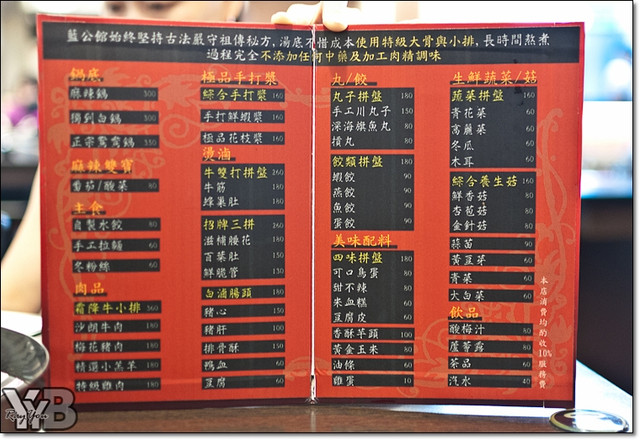 藍公館始終堅持古法嚴守祖傳秘方,湯底不惜成本使用特級大骨與小排,長時間熬煮
過程完全不添加任何中藥及加工肉精調味
鍋底
麻辣鍋 300
白鍋 300
正宗鴛鴦鍋 350
麻辣雙寶
番茄/酸菜 80
主食
自製水餃 80
手工拉麵 60
冬粉絲 60
肉品
霜降牛小排 360
沙朗牛肉 180
梅花豬肉 180
精選小羔羊 180
特級雞肉 180
極品手打漿
綜合手打漿 160
手打鮮蝦漿 180
極品花枝漿 180
燙滷
牛雙打拼盤 260
牛筋 180
蜂巢肚 180
招牌三拼 260
滋補腰花 180
百葉肚 150
鮮脆管 130
白滷腸頭 180
豬心 130
豬肝 100
排骨酥 150
鴨血 60
豆腐 60
丸/餃
丸子拼盤 180
手工川丸子 150
深海旗魚丸 80
摃丸 80
餃類拼盤 180
蝦餃 90
燕餃 90
魚餃 90
蛋餃 90
美味配料
四味拼盤 180
可口鳥蛋 80
甜不辣 80
米血糕 60
豆腐皮 60
香酥芋頭 100
黃金玉米 80
油條 60
雞蛋 10
生鮮蔬菜/菇
蔬菜拼盤 160
青花菜 80
高麗菜 60
冬瓜 60
木耳 60
綜合養生菇 160
鮮香菇 80
杏苞菇 80
金針菇 80
蒜苗 90
黃豆芽 60
青菜 60
大白菜 60
飲品
酸梅汁 80
蘆筍露 80
茶品 60
汽水 40
本店消費均酌收10%服務費
YWB